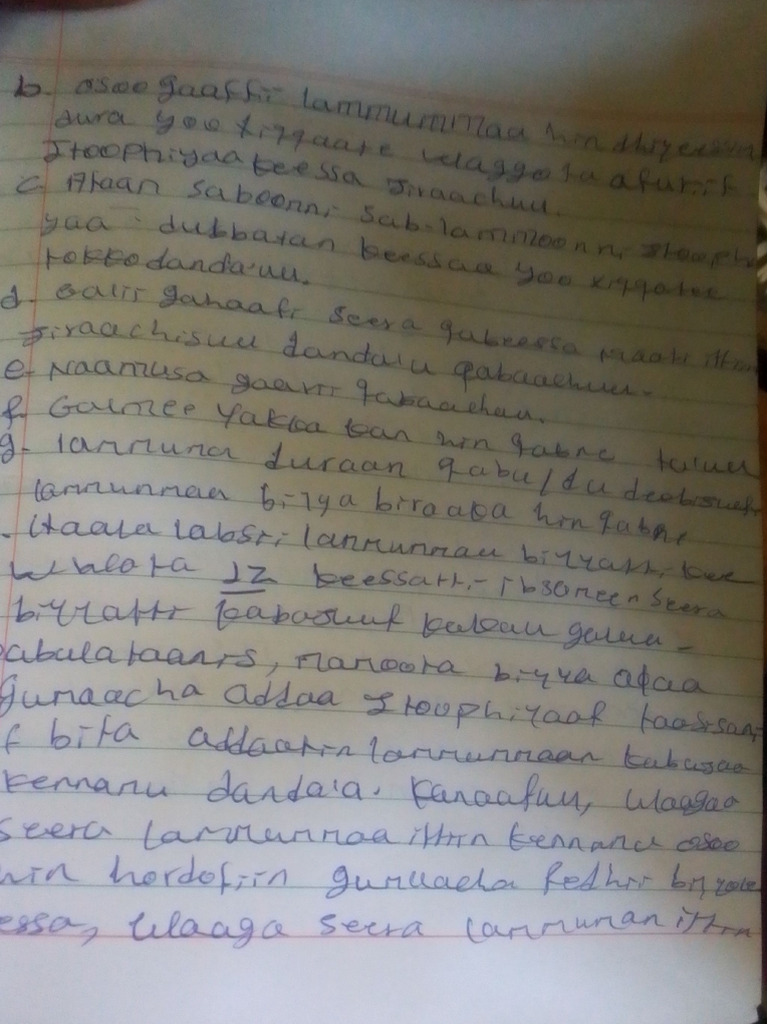 b. osoo gaaffii lammummaa hin dhiyeessin
dura yoo xiqqaate waggota afuriif
Itoophiyaa keessa jiraachuu.
c. Afaan saboonni sab-lammoonni Itooph
yaa dubbatan keessaa yoo xiqqatee
tokko danda'uu.
d. Galii gahaafi seera qabeessa maati ittiin
jiraachisuu danda'u qabaachuu.
e. Naamusa gaarii qabaachuu.
f. Galmee yakka kan hin qabne ta'uu
g. lammuma duraan qabu/du deebisuuf
lammummaa biyya biraaka hin qabne
Haala labsii lammummaa biyyatti kee
wwata 12 keessatti ibsameen seera
biyyatti kabajuuf kakuu galuu-
abulataanis, namoota biyya afaa
gumaacha addaa Itoophiyaaf taassisani
f bifa addaatiin lammummaan kabajaa
kennamu danda'a. Kanaafuu, ulaagaa
seera lammummaa ittiin kennamu osoo
hin hordofiin gumaacha fedhii biyyole
essa, ulaaga seera lammuman ittiin